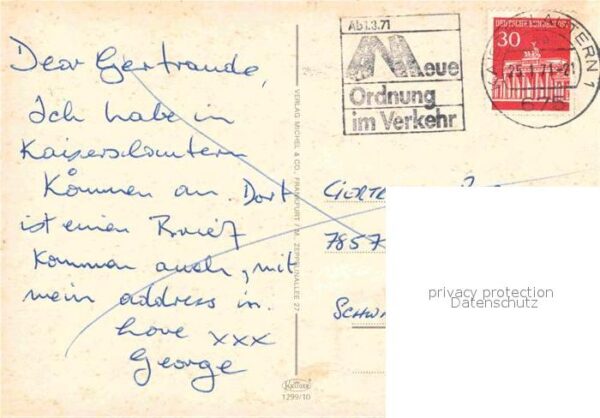 Dear Gertraude,
Ich habe in
Kaiserslautern
Kömmen an Dort
ist einen Brief
kommen auch, mit
mein address in.
Love xxx
George
VERLAG MICHEL & CO., FRANKFURT / M., ZEPPELINALLEE 27
Krüger
1299/10
Ab 1.3.71
Neue
Ordnung
im Verkehr
DEUTSCHE BUNDESPOST
30
KAISERSLAUTERN 1
71-21
675
GERTR
7857
SCHW
privacy protection
Datenschutz